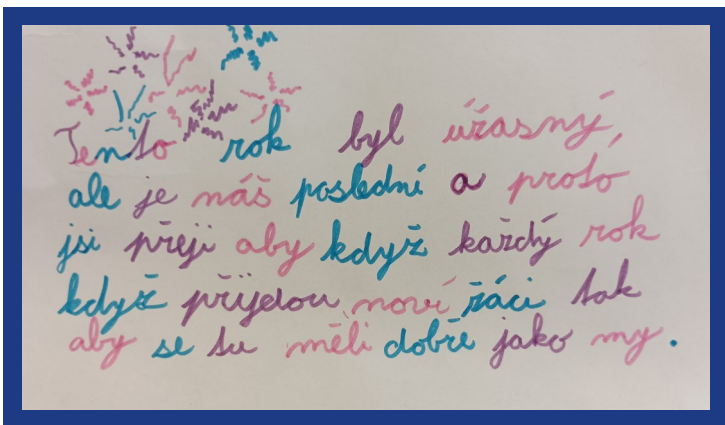 Tento rok byl úžasný,
ale je náš poslední a proto
jsi přeji aby když každý rok
když přijdou noví žáci tak
aby se tu měli dobře jako my.